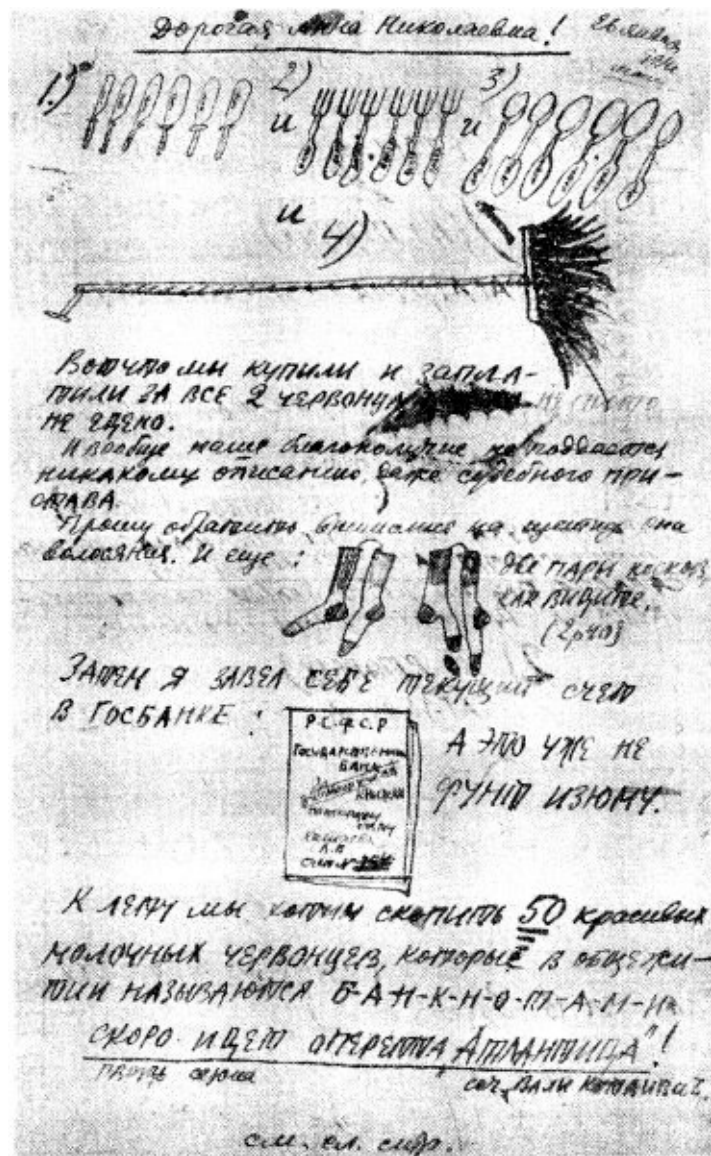 Дорогая Анна Николаевна!
26 января
1)
2)
3)
и
и
и
4)
Вот что мы купили и запла-
тили за все 2 червонца
не едено.
И вообще наше благополучие не поддается
никакому описанию даже судебного при-
става.
Прошу обратить внимание на щетку она
волосяная. И еще:
две пары носков,
как видите.
Затем я завел себе текущий счет
в Госбанке:
Р.С.Ф.С.Р
Государственный
Банк
книжка
счету
А это уже не
фунт изюму.
К лету мы хотим скопить 50 красивых
молочных червонцев, которые в общежи-
тии называются Б-А-Н-К-Н-О-Т-А-М-И
Скоро идет оперетта „Атлантида"!
соч. Вали
см. сл. стр.